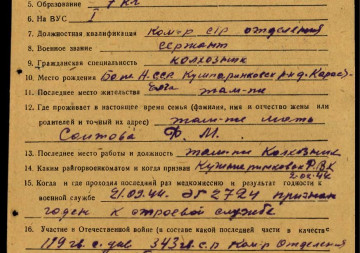 5. Образование 7 кл.
6. На ВУС I
7. Должностная квалификация ком-р стр. отделения
8. Военное звание сержант
9. Гражданская специальность колхозник
10. Место рождения Баш. АССР Кушнаренковск. р-н д.
11. Последнее место жительства там-же
12. Где проживает в настоящее время семья (фамилия, имя и отчество жены или
родителей и точный их адрес) там-же мать
Саитова Ф. М.
13. Последнее место работы и должность там-же колхозник
14. Каким райгорвоенкоматом и когда призван Кушнаренковск РВК
15. Когда и где проходил последний раз медкомиссию и результат годности к
военной службе 21.09.44. ЭГ 2724 признан
годен к строевой службе
16. Участие в Отечественной войне (в составе какой последней части в качестве
343 с.р. ком-р отделения